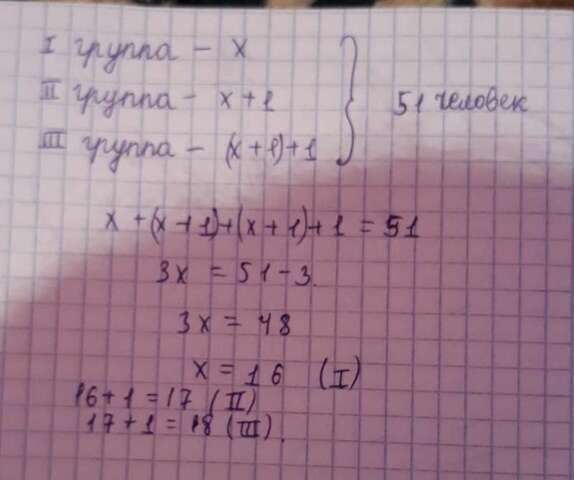 I группа – x
II группа – x + 1
III группа – (x + 1) + 1
51 человек
x + (x + 1) + (x + 1) + 1 = 51
3x = 51 - 3
3x = 48
x = 16 (I)
16 + 1 = 17 (II)
17 + 1 = 18 (III)